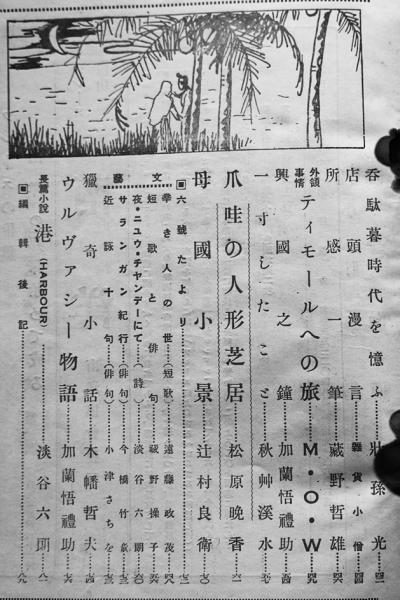 呑駄暮時代を憶ふ………壯孫光
店頭漫言………雜貨小僧
所感一筆………蔵野哲雄
外領事情 ティモールへの旅 M・O・W
興國之鐘………加蘭悟禮助
一寸したこと………秋艸溪水
爪哇の人形芝居………松原晩香
母國小景………辻村良衛
六號たより
文藝
幸き人の世……(短歌)……遠藤政茂
短歌と俳句………蔵野操子
夜・ニユウ・チヤンデーにて……(詩)……淡谷六朗
サランガン紀行……(俳句)……今橋竹
近詠十句……(俳句)……小津さちを
獵奇小話………木幡哲夫
ウルヴァシー物語………加蘭悟禮助
長篇小說 港 (HARBOUR)………淡谷六朗
編輯後記